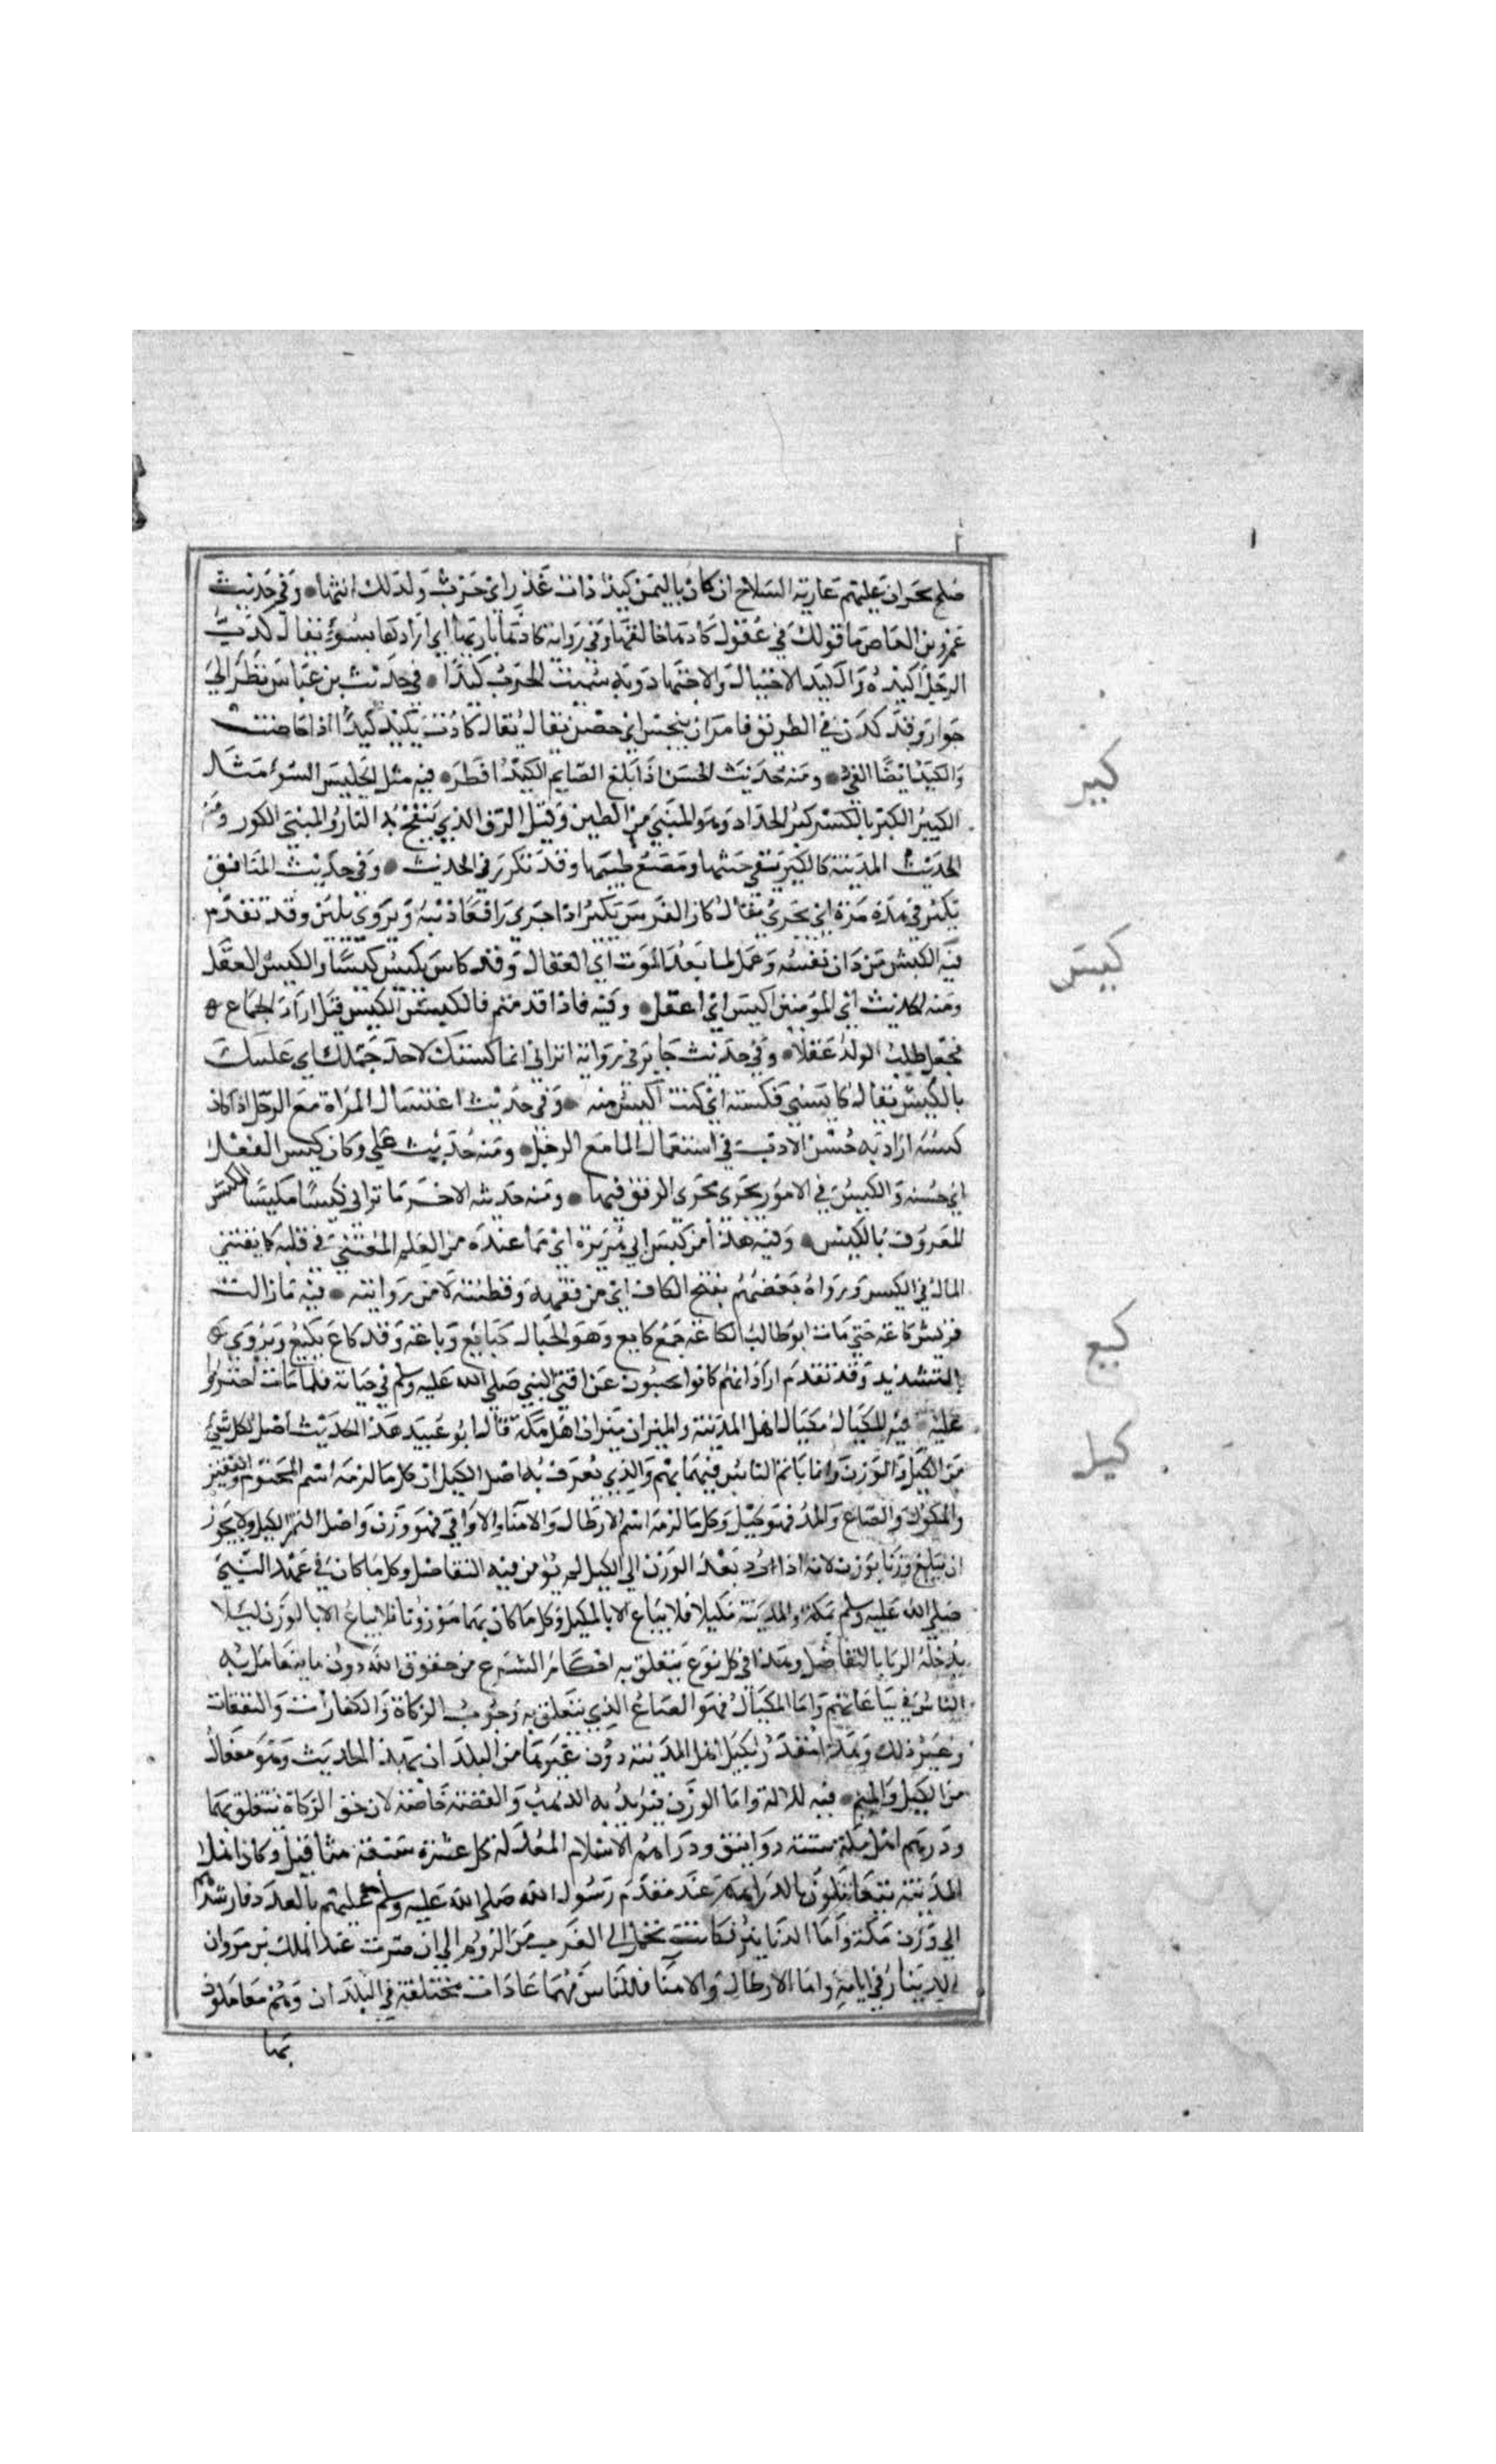 صلح نجران ان عليهم عارية السلاح ان كان باليمن كيد ذات غدر اي حرب ولذلك انثها وفي حديث
عمرو بن العاص ما قولك في عقول كادها خالقها وفي رواية كادها باريها اي ارادها بسوء يقال كدت
الرجل اكيده والكيد الاحتيال والاجتهاد وبه سميت الحرب كيدا في حديث بن عباس نظر الي
جوار وقد كدن في الطريق فامر ان ينحين اي حضن يقال كادت تكيد كيدا اذا حاضت
والكيد ايضا القي ومنه حديث الحسن اذا بلغ الصايم الكيد افطر فيه مثل الجليس السوء مثل
الكير الكير بالكسر كير الحداد وهو المبني من الطين وقيل الزق الذي ينفخ به النار والمبني الكور ومنه
الحديث المدينة كالكير تنفي خبثها وتصنع طيبها وقد تكرر في الحديث وفي حديث المنافق
يكير في هذه مرة اي يجري يقال كار الفرس يكير اذا جري رافعا ذنبه ويروي يكبن وقد تقدم
فيه الكيس من دان نفسه وعمل لما بعد الموت اي العقال وقد كاس يكيس كيسا والكيس العقل
ومنه الحديث اي المومنين اكيس اي اعقل وفيه فاذا قدمتم فالكيس الكيس قيل اراد الجماع
فجعل طلب الولد عقلا وفي حديث جابر في رواية اتراني انما كستك لاخذ جملك اي غلبتك
بالكيس يقال كايسني فكسته اي كنت اكيس منه وفي حديث اغتسال المراة مع الرجل اذا كانت
كيسة اراد به حسن الادب في استعمال الما مع الرجل ومنه حديث علي وكان كيس الفعل
اي حسنه والكيس في الامور يجري مجري الرفق فيها ومنه حديثه الاخر ما تراني كيسا مكيسا المكيس
المعروف بالكيس وفيه هذا من كيس ابي هريرة اي مما عنده من العلم المقتني في قلبه كما يقتني
المال في الكيس ورواه بعضهم بفتح الكاف اي من فقهه وفطنته لا من روايته فيه ما زالت
قريش كاعة حتي مات ابو طالب الكاعة جمع كايع وهو الجبان كبايع وباعة وقد كاع يكيع ويروي
بالتشديد وقد تقدم اراد انهم كانوا يجبنون عن اذي النبي صلي الله عليه وسلم في حياته فلما مات اجتروا
عليه فيه المكيال مكيال اهل المدينة والميزان ميزان اهل مكة قال ابو عبيد هذا الحديث اصل لكل شي
من الكيل والوزن وانما ياتم الناس فيهما بهم والذي يعرف به اصل الكيل ان كل ما لزمه اسم المختوم والقفيز
والمكوك والصاع والمد فهو كيل وكل ما لزمه اسم الارطال والامنا والاواقي فهو وزن واصل التمر الكيل ولا يجوز
ان يباع وزنا بوزن لانه اذا رد بعد الوزن الي الكيل لم يؤمن فيه التفاضل وكل ما كان في عهد النبي
صلي الله عليه وسلم بمكة والمدينة مكيلا فلا يباع الا بالكيل وكل ما كان بهما موزونا فلا يباع الا بالوزن ليلا
يدخله الربا بالتفاضل وهذا في كل نوع يتعلق به احكام الشرع من حقوق الله دون ما يتعامل به
الناس في بياعاتهم واما المكيال فهو الصاع الذي يتعلق به وجوب الزكاة والكفارات والنفقات
وغير ذلك وهو مقدر بكيل اهل المدينة دون غيرها من البلدان بهذا الحديث وهو مفعال
من الكيل والميم فيه للالة واما الوزن فيريد به الذهب والفضة خاصة لان حق الزكاة يتعلق بهما
ودرهم اهل مكة ستة دوانيق ودراهم الاسلام المعدلة كل عشرة سبعة مثاقيل وكان اهل
المدينة يتعاملون بالدراهم عند مقدم رسول الله صلي الله عليه وسلم عليهم بالعدد فارشدهم
الي وزن مكة واما الدنانير فكانت تحمل الي العرب من الروم الي ان ضربت عبد الملك بن مروان
الدينار في ايامه واما الارطال والامنا فللناس فيهما عادات مختلفة في البلدان وهم معاملون
بها
كير
كيس
كيع
كيل